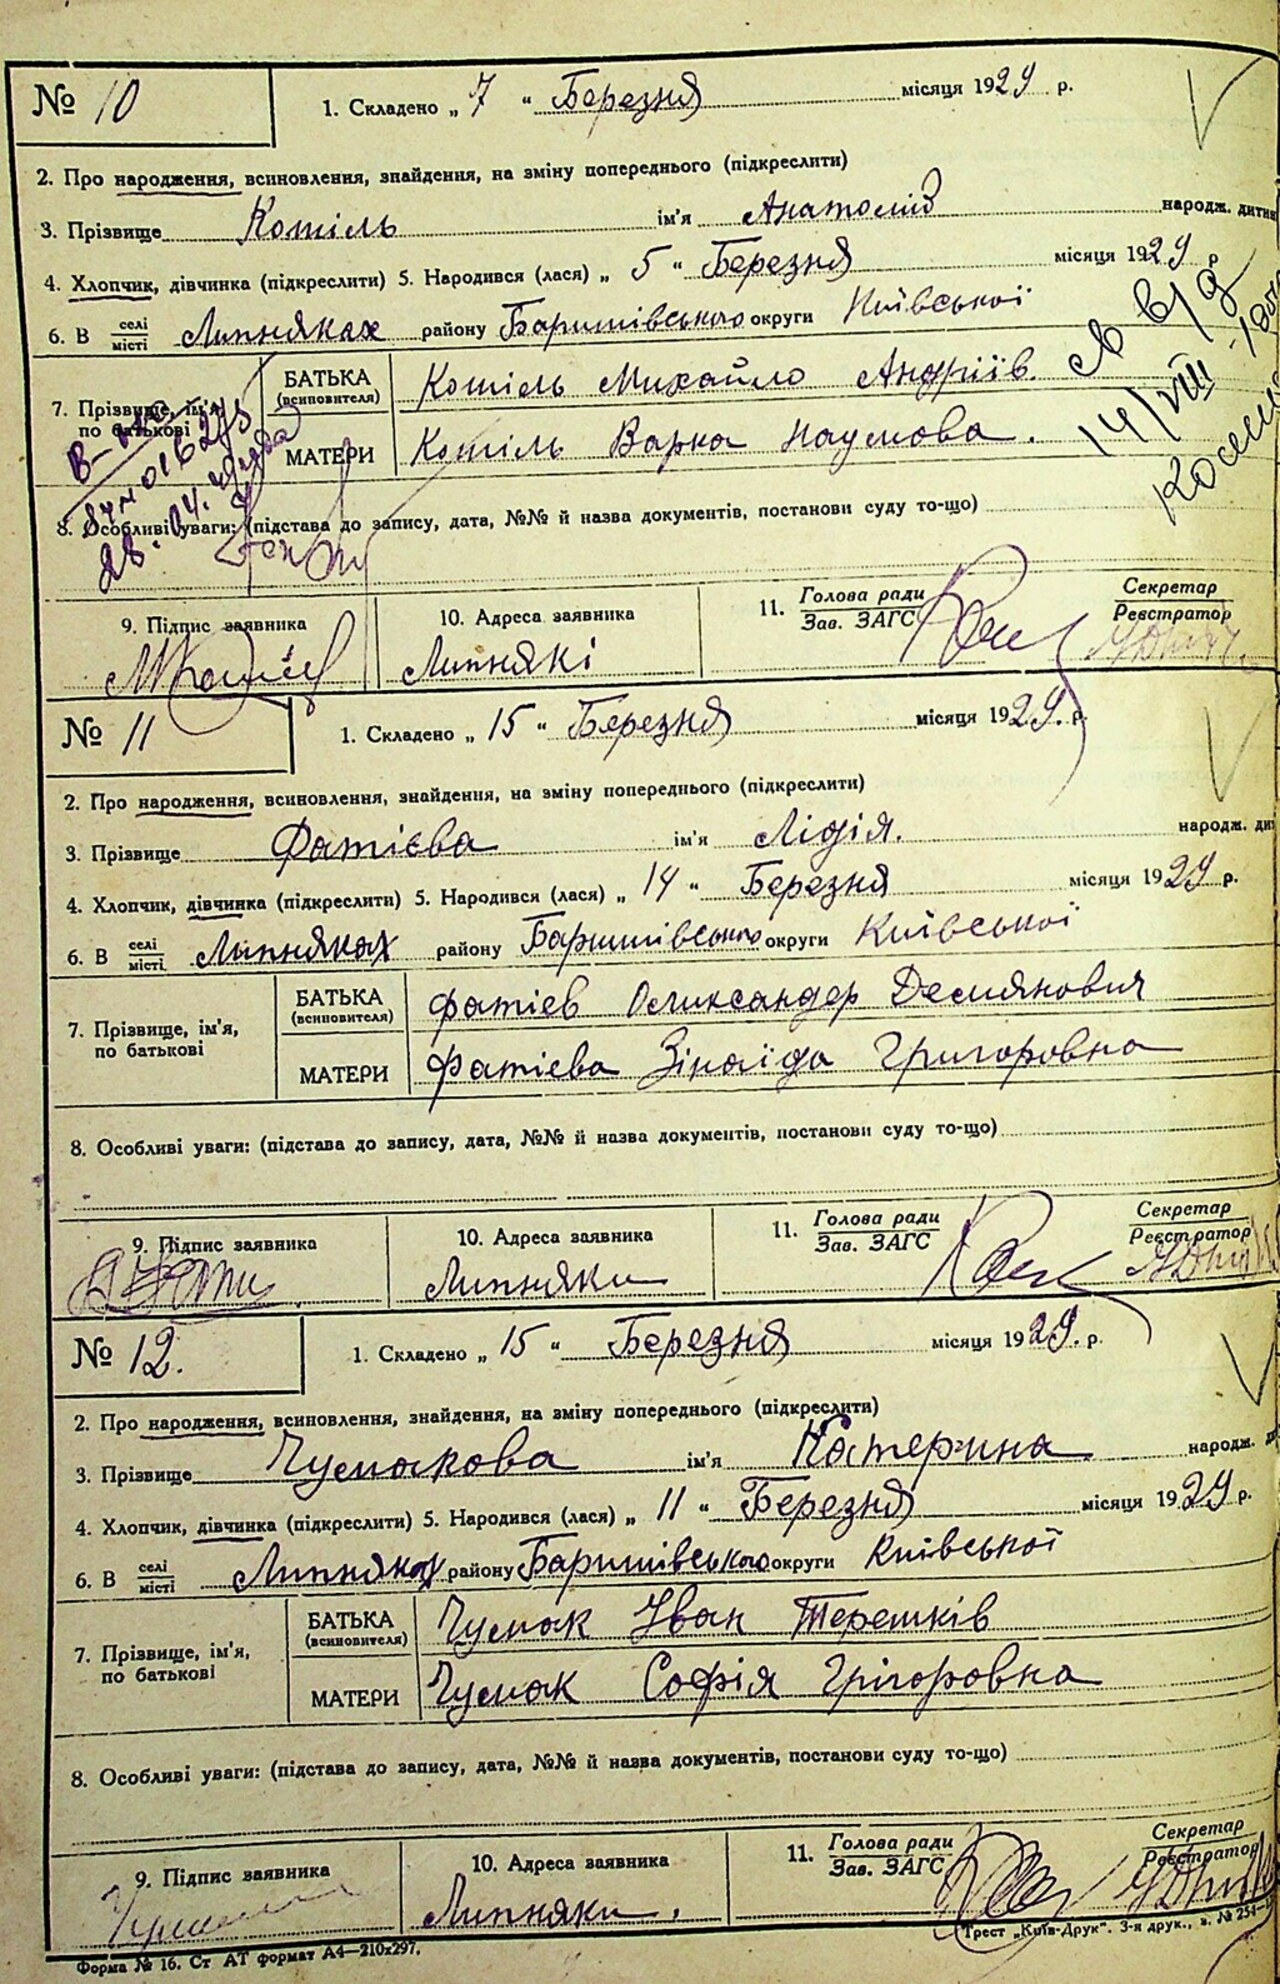 № 10
1. Складено „ 7 “ Березня місяця 1929 р.
2. Про народження, всиновлення, знайдення, на зміну попереднього (підкреслити)
3. Прізвище Котіль ім'я Анатолій народж. дитин
4. Хлопчик, дівчинка (підкреслити) 5. Народився (лася) „ 5 “ Березня місяця 1929 р
6. В селі місті Липняках району Баришівського округи Київської
7. Прізвище, ім'я, по батькові
БАТЬКА (всиновителя) Котіль Михайло Андріїв.
МАТЕРИ Котіль Варка Наумова.
14/VIII
8. Особливі уваги: (підстава до запису, дата, №№ й назва документів, постанови суду то-що)
9. Підпис заявника
10. Адреса заявника
Липнякі
11. Голова ради Зав. ЗАГС
Секретар Реєстратор
№ 11
1. Складено „ 15 “ Березня місяця 1929. р.
2. Про народження, всиновлення, знайдення, на зміну попереднього (підкреслити)
3. Прізвище Фатієва ім'я Лідія. народж. ди
4. Хлопчик, дівчинка (підкреслити) 5. Народився (лася) „ 14 “ Березня місяця 1929 р.
6. В селі місті Липняках району Баришівського округи Київської
7. Прізвище, ім'я, по батькові
БАТЬКА (всиновителя) Фатієв Олександер Демянович
МАТЕРИ Фатієва Зінаїда Григоровна
8. Особливі уваги: (підстава до запису, дата, №№ й назва документів, постанови суду то-що)
9. Підпис заявника
10. Адреса заявника
Липняки
11. Голова ради Зав. ЗАГС
Секретар Реєстратор
№ 12.
1. Складено „ 15 “ Березня місяця 1929. р.
2. Про народження, всиновлення, знайдення, на зміну попереднього (підкреслити)
3. Прізвище Чумакова ім'я Катерина народж. ди
4. Хлопчик, дівчинка (підкреслити) 5. Народився (лася) „ 11 “ Березня місяця 1929 р.
6. В селі місті Липняках району Баришівського округи Київської
7. Прізвище, ім'я, по батькові
БАТЬКА (всиновителя) Чумак Іван Терешків
МАТЕРИ Чумак Софія Грігоровна
8. Особливі уваги: (підстава до запису, дата, №№ й назва документів, постанови суду то-що)
9. Підпис заявника
10. Адреса заявника
Липняки.
11. Голова ради Зав. ЗАГС
Секретар Реєстратор
Форма № 16. Ст АТ формат А4—210х297.
Трест „Київ-Друк“. 3-я друк., з. № 254—